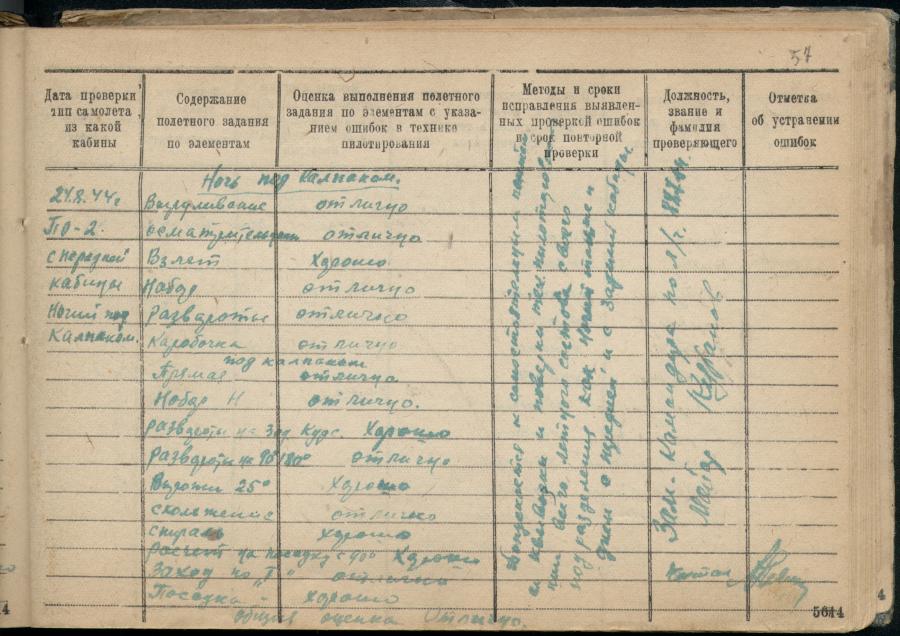 57
Дата проверки
тип самолета
из какой
кабины
Содержание
полетного задания
по элементам
Оценка выполнения полетного
задания по элементам с указа-
нием ошибок в технике
пилотирования
Методы и сроки
исправления выявлен-
ных проверкой ошибок
и срок повторной
проверки
Должность,
звание и
фамилия
проверяющего
Отметка
об устранении
ошибок
Ночь под Калпаком.
24.8.44г Выруливание отлично
По-2. осматрительность отлично
с передней Взлет Хорошо
кабины Набор отлично
Ночий под Развароты отлично
Калпаком. Каробочка отлично
под калпаком
Прямая отлично
Набор Н отлично.
развароты на зад. Курс. Хорошо
Развароты на 90 180° отлично
Виражи 25° Хорошо
скольжение отлично
спираль хорошо
Расчет на посадку с 900 Хорошо
Заход по "Т" отлично
Посадка хорошо
общая оценка Отлично.
Допускается к самостоятельным полетам
и проверки тех. пилотирования
летного состава своего
подразделения как ночью так и
днем с передней и с задней кабины.
Зам. Командира по л/ч
Майор
Капитан
5614
4